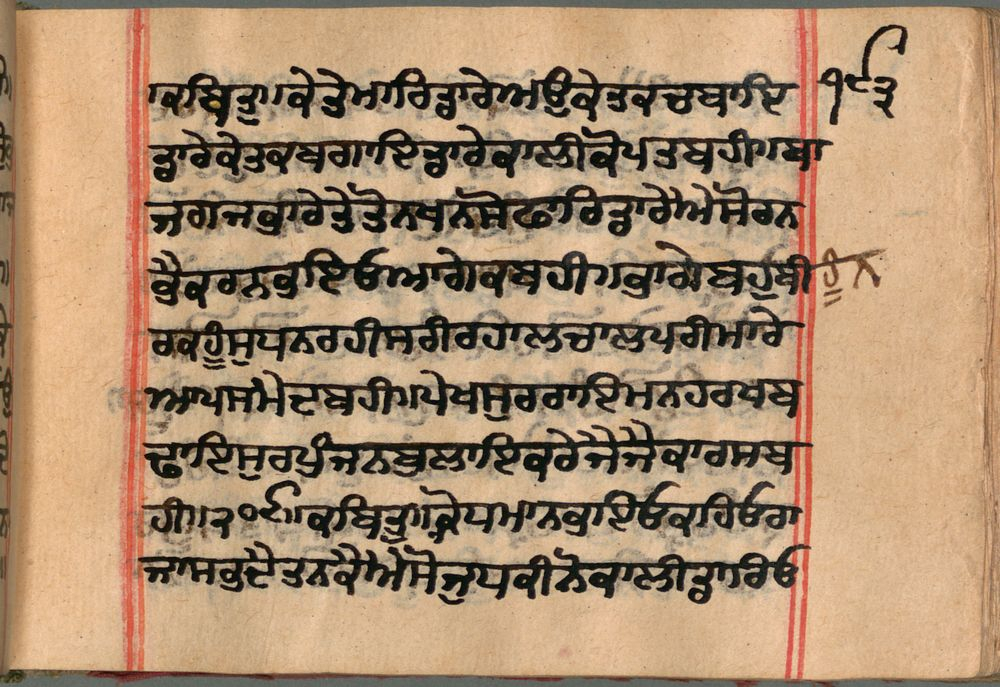 ।ਕਬਿਤੁ।।ਕੇਤੇਮਾਰਿਡਾਰੇਅਉਕੇਤਕਚਬਾਇ ੧੯੩
ਡਾਰੇਕੇਤਕਬਗਾਇਡਾਰੇਕਾਲੀਕੋਪਤਬਹੀ।ਬਾ
ਜਗਜਕ੍ਰਾਰੇਤੇਤੋਨਖਨਸੋਫਾਰਿਡਾਰੇਐਸੋਰਨ
ਭੈਕਰਨਭਇਓਆਗੇਕਬਹੀ।ਭਾਗੇਬਹੁਬੀ ਹੂੰਨ
ਰਕਹੂੰਸੁਧਨਰਹੀਸਰੀਰਹਾਲਚਾਲਪਰੀਮਾਰੇ
ਆਪਸਮੇਦਬਹੀ।ਪੇਖਸੁਰਰਾਇਮਨਹਰਖਬ
ਢਾਇਸੁਰਪੁੰਜਨਬੁਲਾਇਕਰੇਜੈਜੈਕਾਰਸਬ
ਹੀ।।੨੦੬।।ਕਬਿਤੁ।।ਕ੍ਰੋਧਮਾਨਭਇਓਕਹਿਓਰਾ
ਜਾਸਭਦੈਤਨਕੈਐਸੋਜੁਧਕੀਨੋਕਾਲੀਡਾਰਿਓ